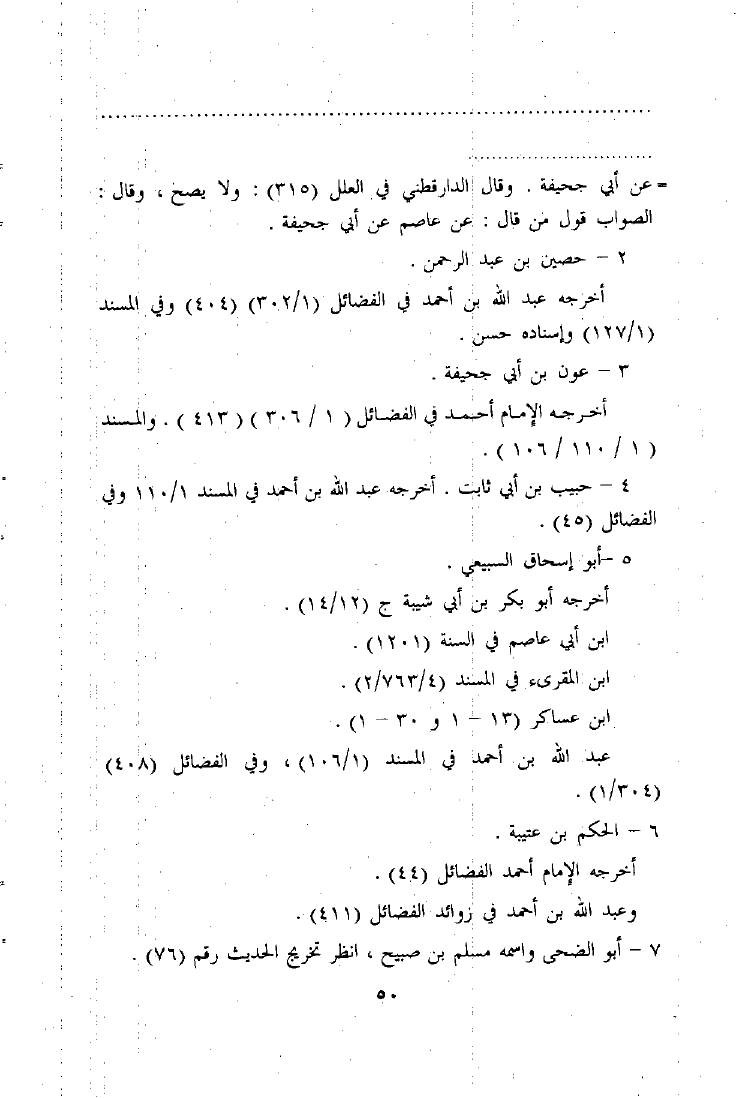 = عن أبي جحيفة . وقال الدارقطني في العلل (٣١٥) : ولا يصح ، وقال :
الصواب قول من قال : عن عاصم عن أبي جحيفة .
٢ – حصين بن عبد الرحمن .
أخرجه عبد الله بن أحمد في الفضائل (٣٠٢/١) (٤٠٤) وفي المسند
(١٢٧/١) وإسناده حسن .
٣ – عون بن أبي جحيفة .
أخرجه الإمام أحمد في الفضائل ( ١ / ٣٠٦ ) ( ٤١٣ ) . والمسند
( ١ / ١١٠ / ١٠٦ ) .
٤ – حبيب بن أبي ثابت . أخرجه عبد الله بن أحمد في المسند ١١٠/١ وفي
الفضائل (٤٥) .
٥ –أبو إسحاق السبيعي .
أخرجه أبو بكر بن أبي شيبة ج (١٤/١٢) .
ابن أبي عاصم في السنة (١٢٠١) .
ابن المقرىء في المسند (٢/٧٦٣/٤) .
ابن عساكر (١٣ – ١ و ٣٠ – ١) .
عبد الله بن أحمد في المسند (١٠٦/١) ، وفي الفضائل (٤٠٨)
(١/٣٠٤) .
٦ – الحكم بن عتيبة .
أخرجه الإمام أحمد الفضائل (٤٤) .
وعبد الله بن أحمد في زوائد الفضائل (٤١١) .
٧ – أبو الضحى واسمه مسلم بن صبيح ، انظر تخريج الحديث رقم (٧٦) .
٥٠